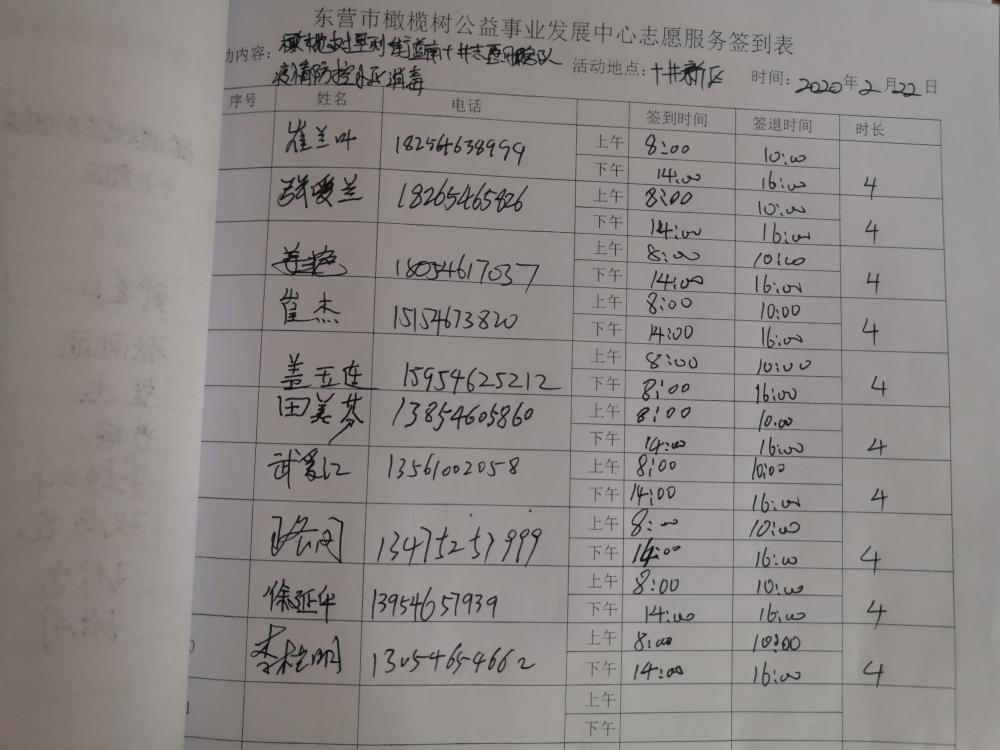 东营市橄榄树公益事业发展中心志愿服务签到表
动内容: 橄榄树 街 南十井志愿服务队 活动地点: 十井新区 时间: 2020年2月22日
疫情防控 消毒
序号 姓名 电话 签到时间 签退时间 时长
崔兰叶 18254638999 上午 8:00 10:00
下午 14:00 16:00 4
张爱兰 18265465826 上午 8:00 10:00
下午 14:00 16:00 4
18054617037 上午 8:00 10:00
下午 14:00 16:00 4
崔杰 15154673820 上午 8:00 10:00
下午 14:00 16:00 4
盖玉莲 15954625212 上午 8:00 10:00
下午 8:00 16:00 4
田美芬 13854605860 上午 8:00 10:00
下午 14:00 16:00 4
武爱江 13561002058 上午 8:00 10:00
下午 14:00 16:00 4
13475257999 上午 8:00 10:00
下午 14:00 16:00 4
徐延华 13954657939 上午 8:00 10:00
下午 14:00 16:00 4
李桂明 13054654662 上午 8:00 10:00
下午 14:00 16:00 4
上午
下午